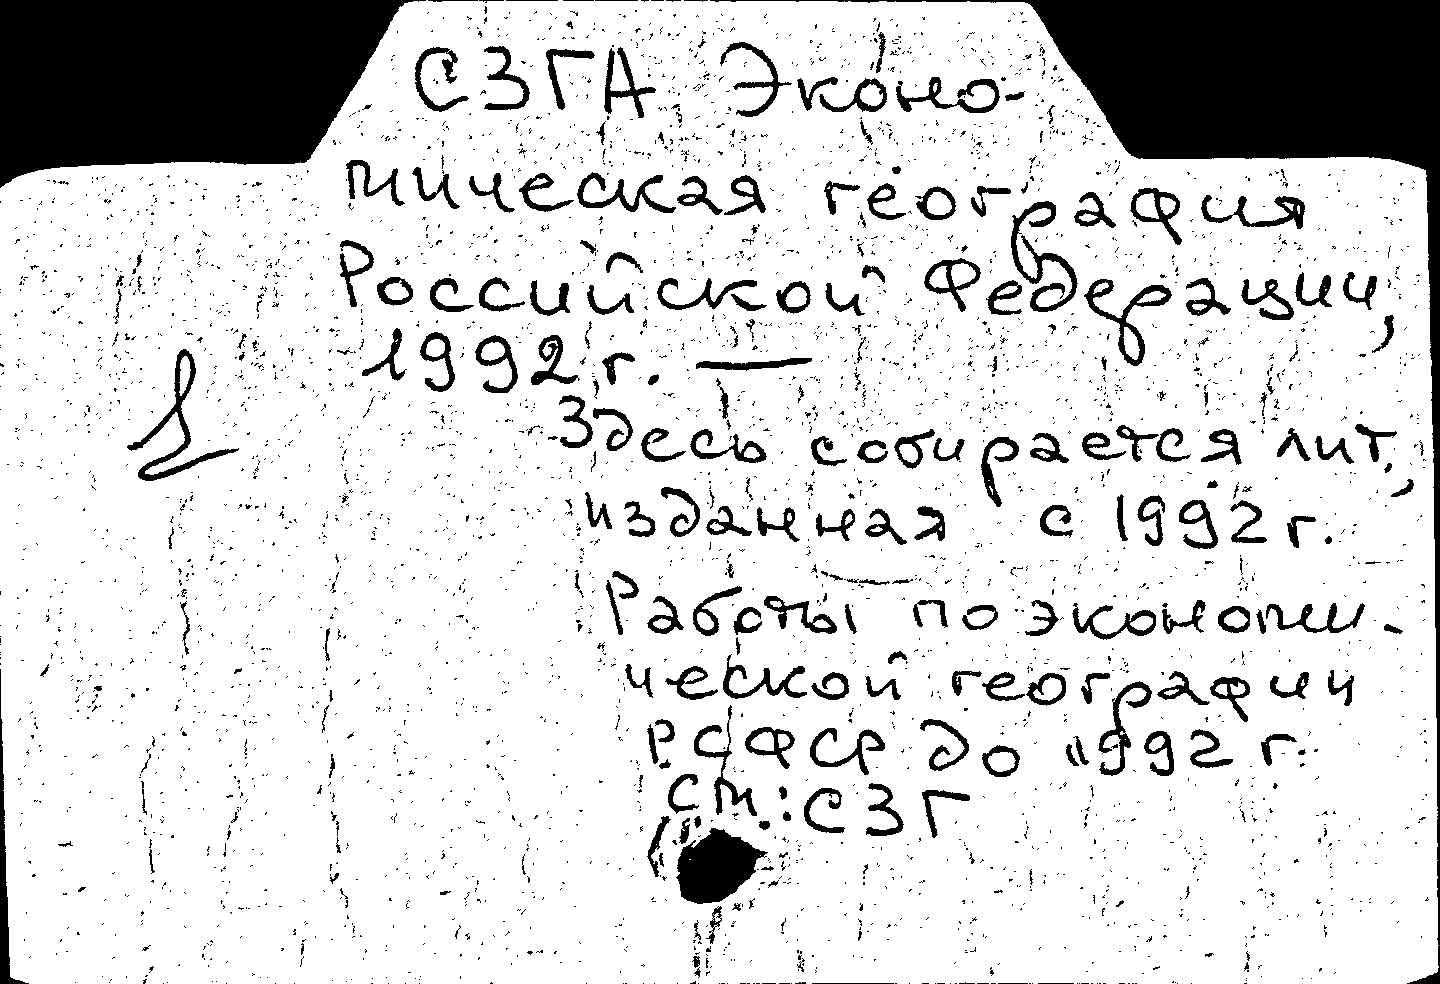 СЗГА Эконо-
мическая география
Российской Федерации,
1992 г. —
Здесь собирается лит.,
изданная с 1992 г.
Работы по экономи-
ческой географии
РСФСР до 1992 г.
см.: СЗГ